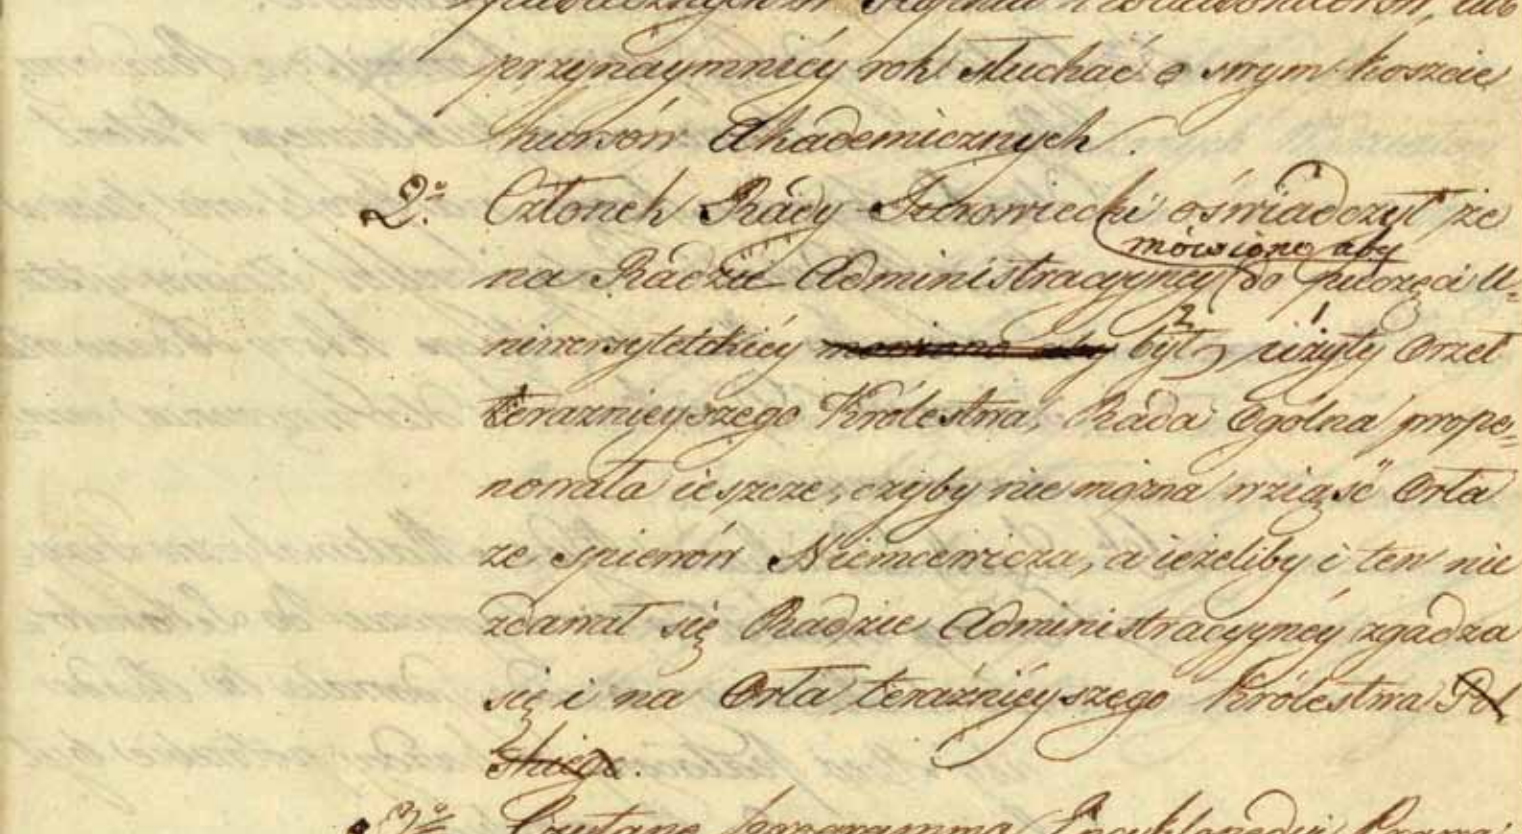 przynaymniéy rok słuchać o swym koszcie
kursów Akademicznych.
2o. Członek Rady Surowiecki oświadczył że
mówiono aby
na Radzie Administracyynéy do pieczęci U-
niwersytétskiéy mówiono aby był 2 użyty 1 Orzeł
teraznieyszego Królestwa, Rada Ogólna propo-
nowała ieszcze, czyby nie można wziąść Orła
ze spiewów Niemcewicza, a ieżeliby i ten nie
zdawał się Radzie Administracyynéy zgadza
się i na Orła teraźnieyszego Królestwa Pol
skiego.
3o Czytano programma Encyklopedyi